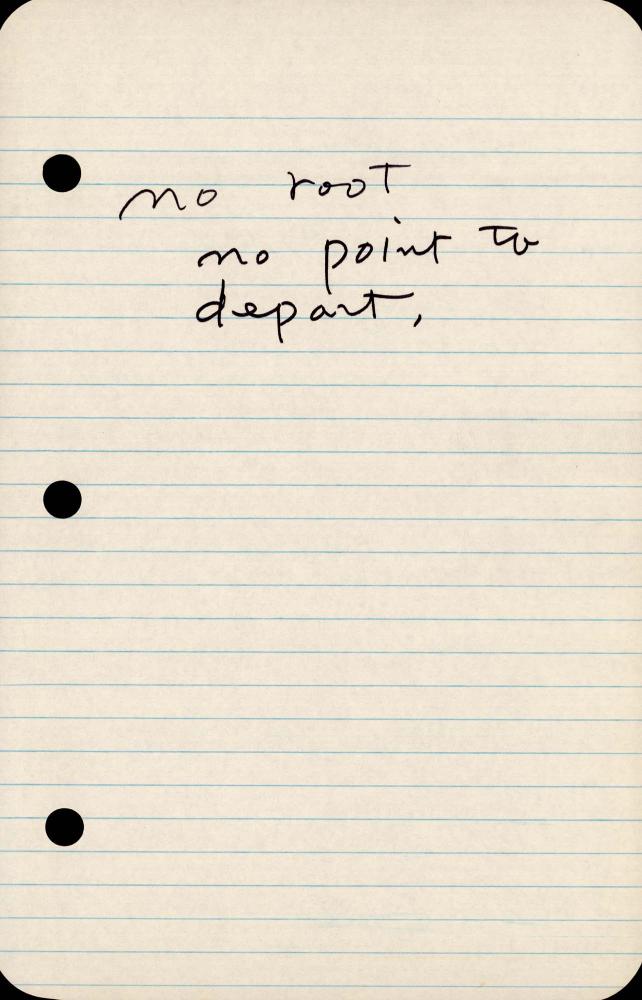 no root
no point to
depart,